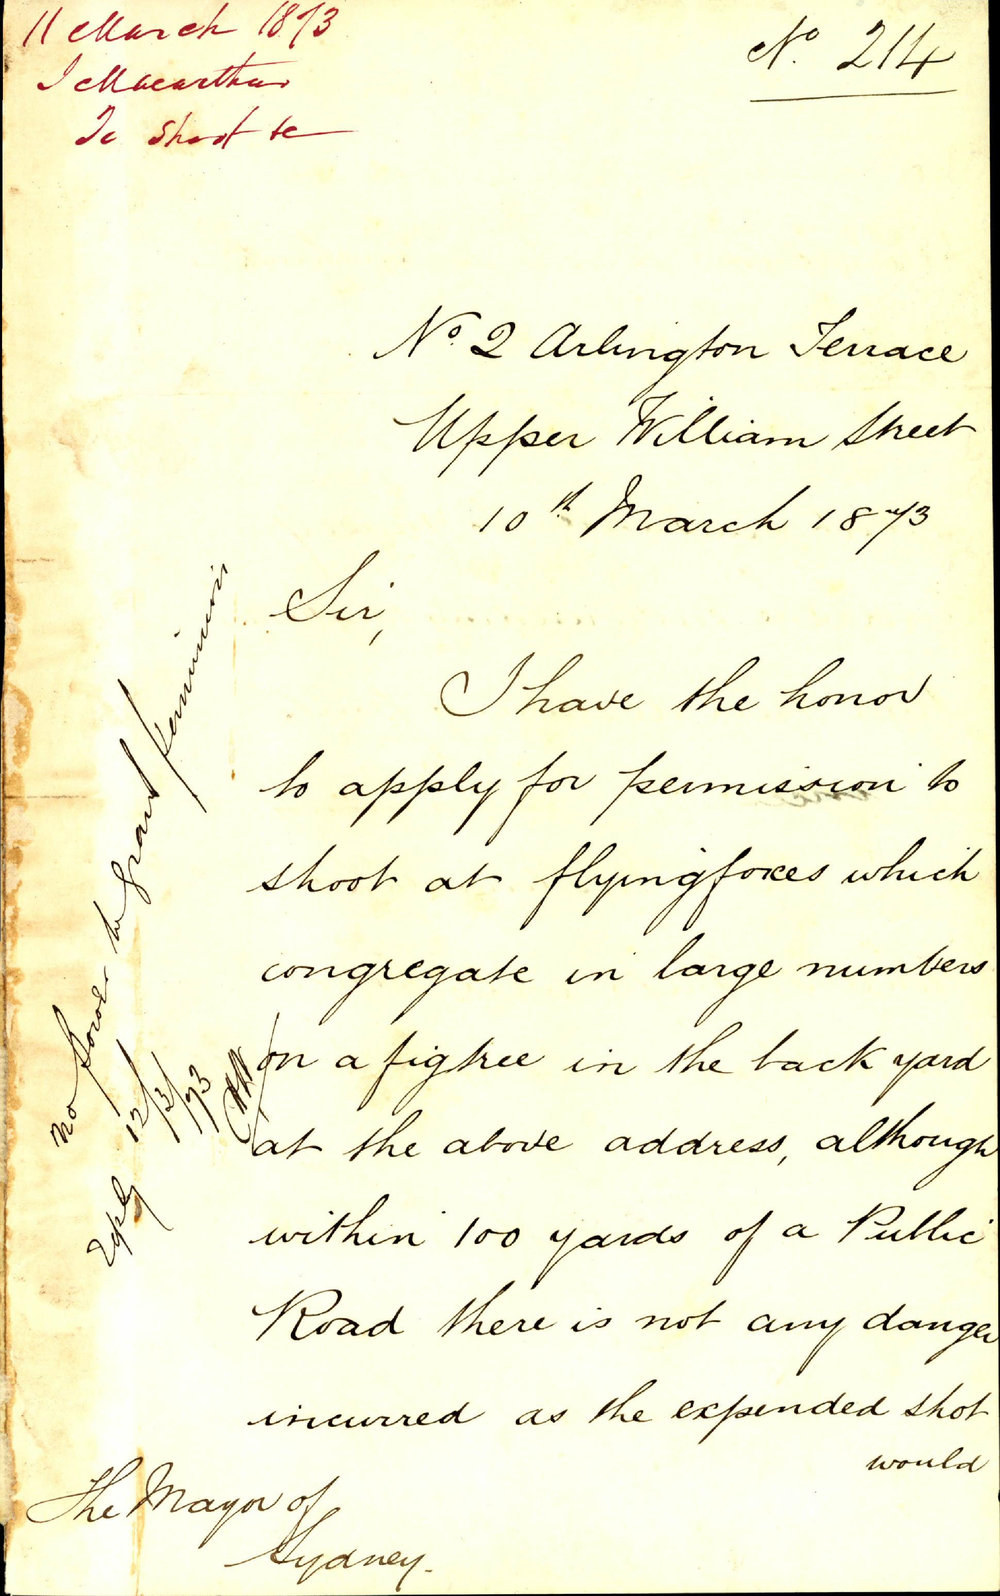 11 March 1873
J Macarthur
To Shoot &c
No. 214
No. 2 Arlington Terrace
Upper William Street
10th March 1873
Sir,
I have the honor
to apply for permission to
shoot at flyingfoxes which
congregate in large numbers
on a figtree in the back yard
at the above address, although
within 100 yards of a Public
Road there is not any danger
incurred as the expended shot
would
The Mayor of
Sydney.
No power to grant permission
Reply 12/3/73